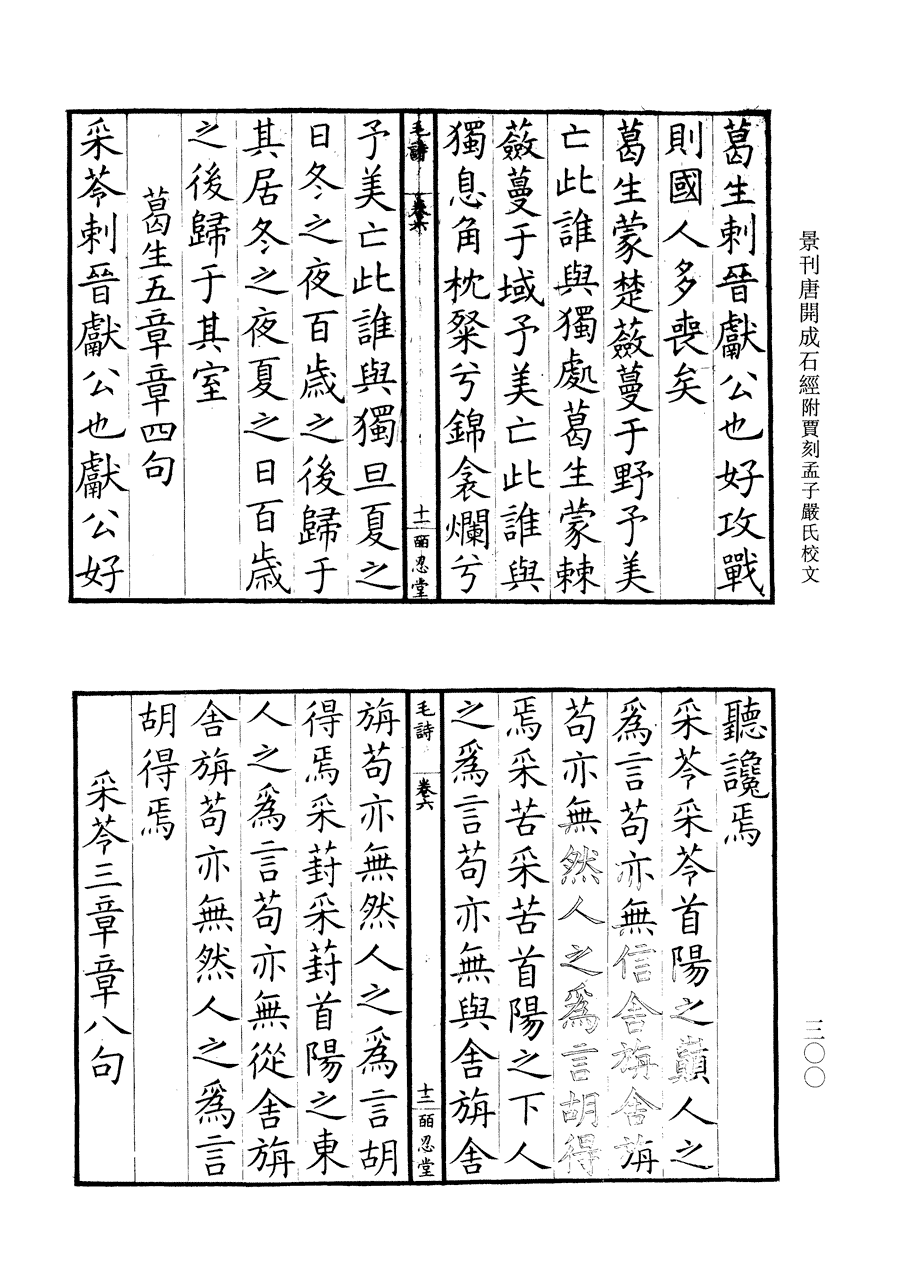 景刊唐開成石經附賈刻孟子嚴氏校文
三〇〇
葛生刺晉獻公也好攻戰
則國人多喪矣
葛生蒙楚蘞蔓于野予美
亡此誰與獨處葛生蒙棘
蘞蔓于域予美亡此誰與
獨息角枕粲兮錦衾爛兮
毛詩 卷六 十一 皕忍堂
予美亡此誰與獨旦夏之
日冬之夜百歲之後歸于
其居冬之夜夏之日百歲
之後歸于其室
葛生五章章四句
采苓刺晉獻公也獻公好
聽讒焉
采苓采苓首陽之巔人之
爲言苟亦無信舍旃舍旃
苟亦無然人之爲言胡得
焉采苦采苦首陽之下人
之爲言苟亦無與舍旃舍
毛詩 卷六 十二 皕忍堂
旃苟亦無然人之爲言胡
得焉采葑采葑首陽之東
人之爲言苟亦無從舍旃
舍旃苟亦無然人之爲言
胡得焉
采苓三章章八句